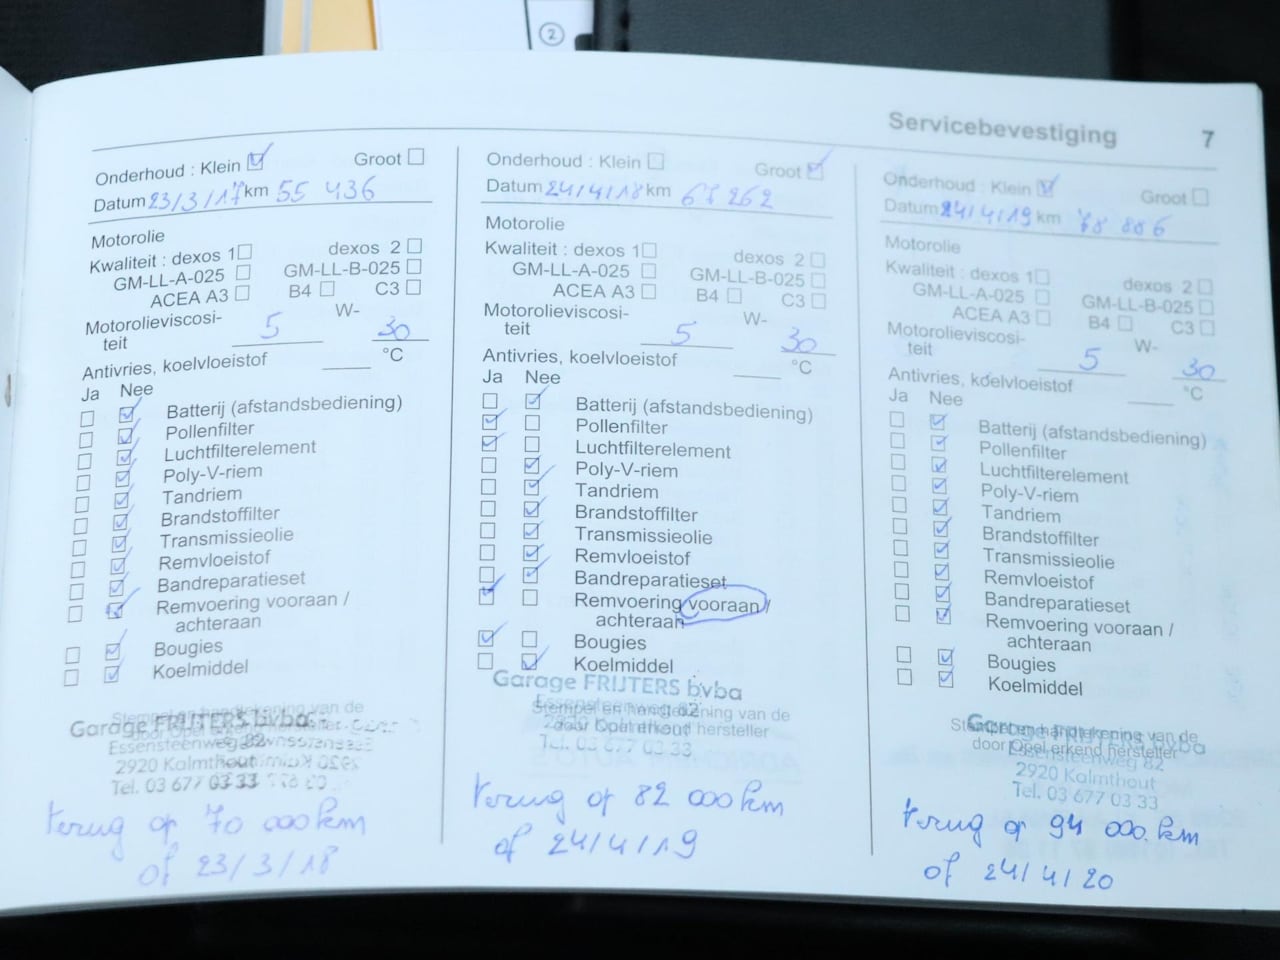 2
Servicebevestiging 7
Onderhoud : Klein Groot
Datum 23/3/17 km 55 436
Motorolie
Kwaliteit : dexos 1 dexos 2
GM-LL-A-025 GM-LL-B-025
ACEA A3 B4 C3
Motorolieviscosi- W-
teit 5 30
Antivries, koelvloeistof °C
Ja Nee
Batterij (afstandsbediening)
Pollenfilter
Luchtfilterelement
Poly-V-riem
Tandriem
Brandstoffilter
Transmissieolie
Remvloeistof
Bandreparatieset
Remvoering vooraan /
achteraan
Bougies
Koelmiddel
Stempel en handtekening van de
door Opel erkend hersteller
Garage FRIJTERS bvba
Essensteenweg 82
2920 Kalmthout
Tel. 03 677 03 33
terug op 70 000 km
of 23/3/18
Onderhoud : Klein Groot
Datum 24/4/18 km 262
Motorolie
Kwaliteit : dexos 1 dexos 2
GM-LL-A-025 GM-LL-B-025
ACEA A3 B4 C3
Motorolieviscosi- W-
teit 5 30
Antivries, koelvloeistof °C
Ja Nee
Batterij (afstandsbediening)
Pollenfilter
Luchtfilterelement
Poly-V-riem
Tandriem
Brandstoffilter
Transmissieolie
Remvloeistof
Bandreparatieset
Remvoering vooraan /
achteraan
Bougies
Koelmiddel
Garage FRIJTERS bvba
Essensteenweg 82
Stempel en handtekening van de
2920 Kalmthout
door Opel erkend hersteller
Tel. 03 677 03 33
terug op 82 000 km
of 24/4/19
Onderhoud : Klein Groot
Datum 24/4/19 km 78 886
Motorolie
Kwaliteit : dexos 1 dexos 2
GM-LL-A-025 GM-LL-B-025
ACEA A3 B4 C3
Motorolieviscosi- W-
teit 5 30
Antivries, koelvloeistof °C
Ja Nee
Batterij (afstandsbediening)
Pollenfilter
Luchtfilterelement
Poly-V-riem
Tandriem
Brandstoffilter
Transmissieolie
Remvloeistof
Bandreparatieset
Remvoering vooraan /
achteraan
Bougies
Koelmiddel
Stempel en handtekening van de
door Opel erkend hersteller
Garage FRIJTERS bvba
Essensteenweg 82
2920 Kalmthout
Tel. 03 677 03 33
terug op 94 000 km
of 24/4/20